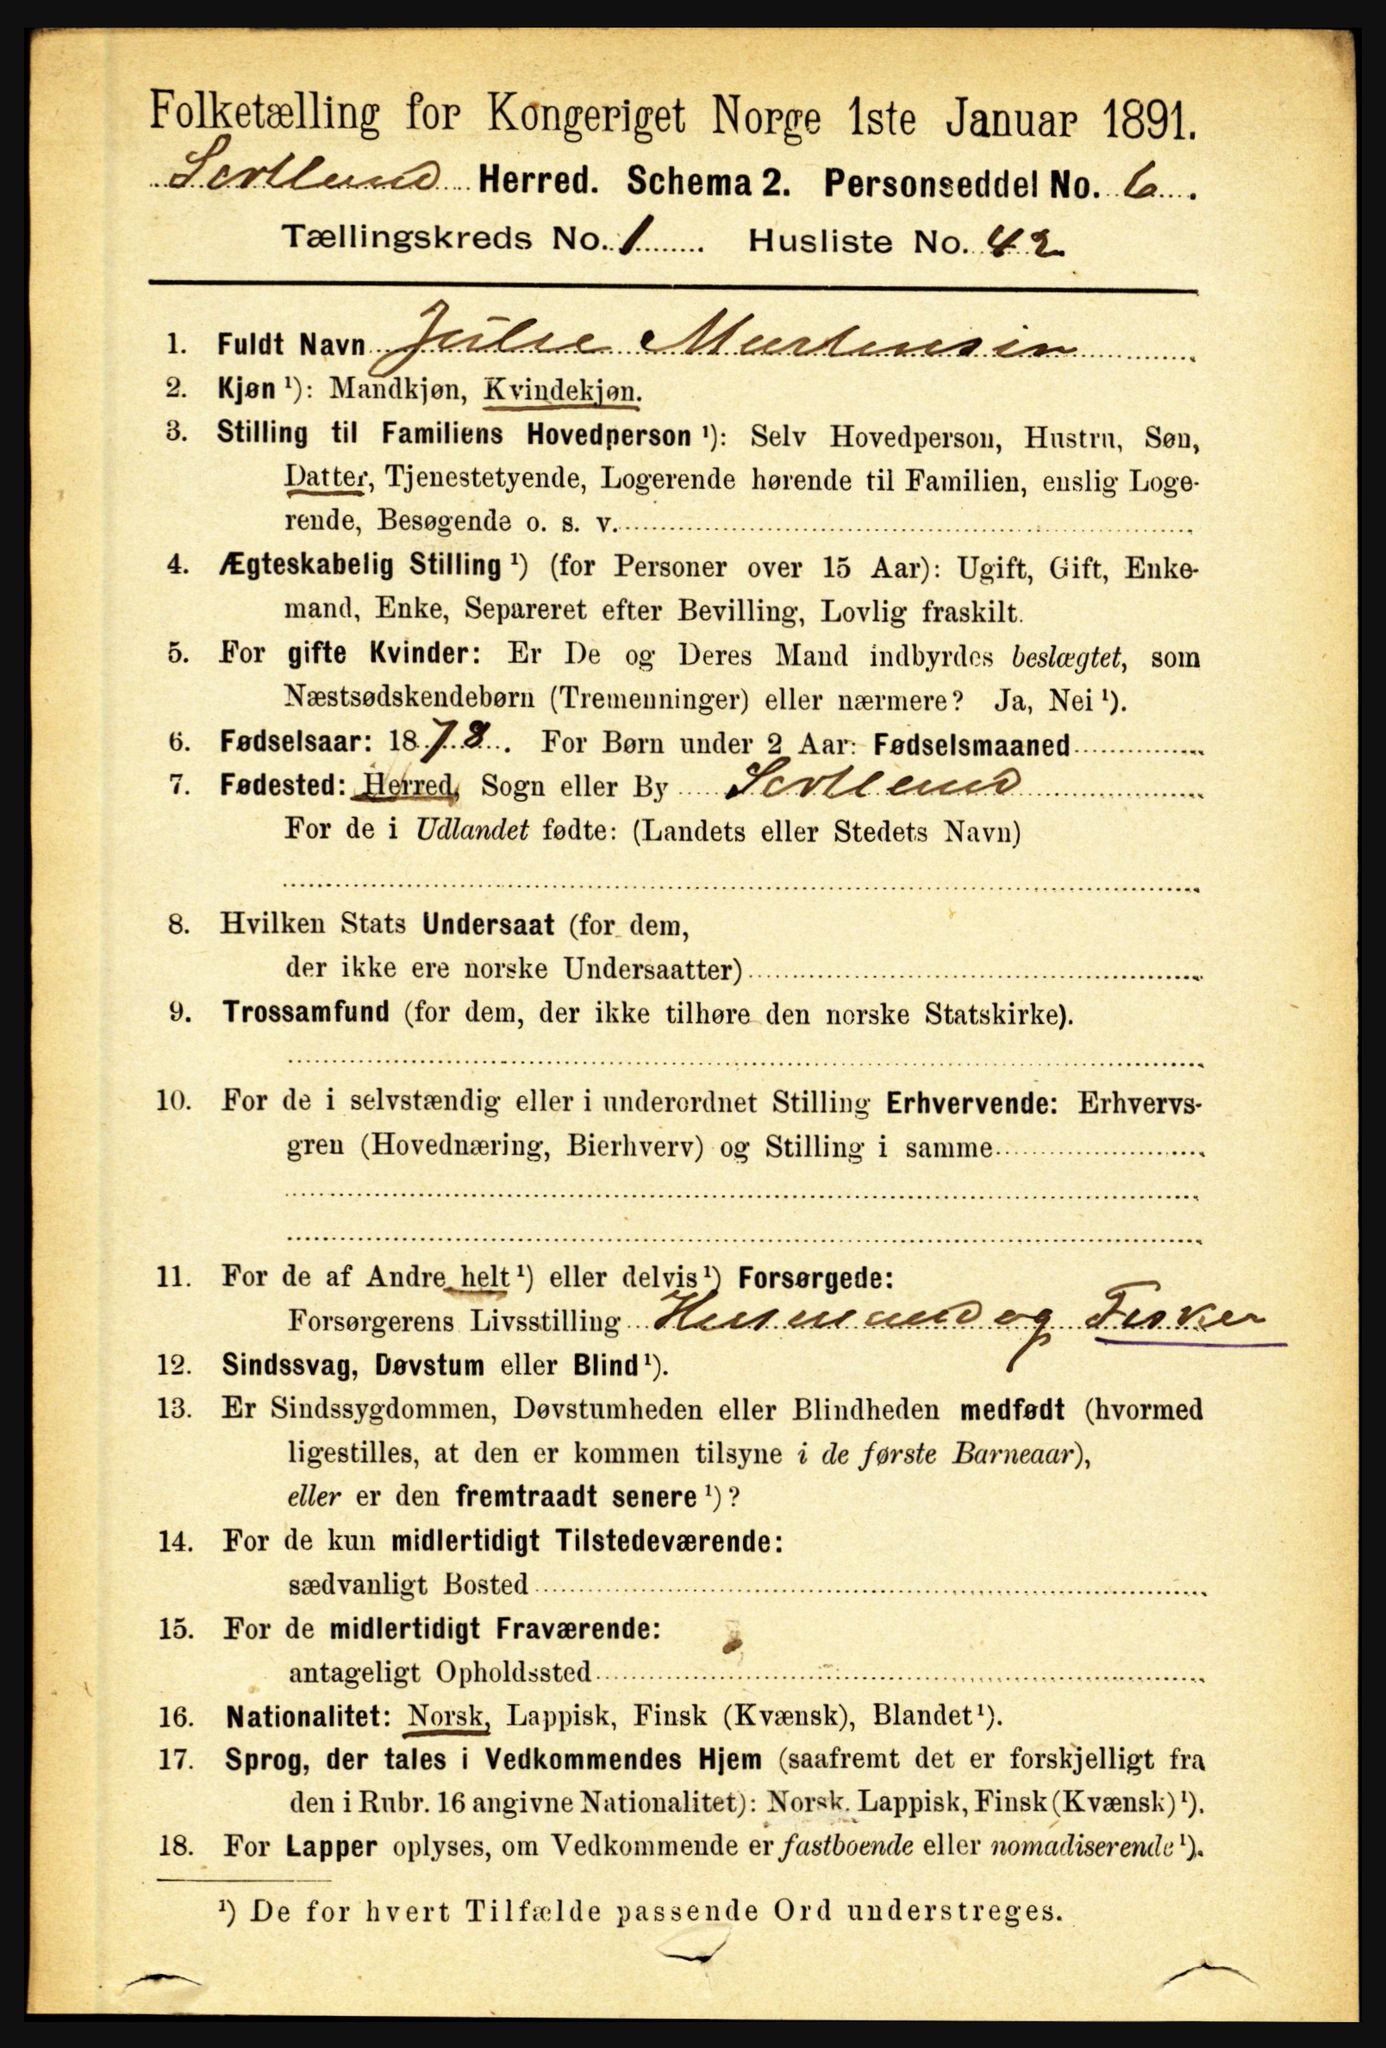 Folketælling for Kongeriget Norge 1ste Januar 1891.
Sortland Herred. Schema 2. Personseddel No. 6.
Tællingskreds No. 1 Husliste No. 42
1. Fuldt Navn Julie Martensin
2. Kjøn ¹): Mandkjøn, Kvindekjøn.
3. Stilling til Familiens Hovedperson ¹): Selv Hovedperson, Hustru, Søn,
Datter, Tjenestetyende, Logerende hørende til Familien, enslig Loge-
rende, Besøgende o. s. v.
4. Ægteskabelig Stilling ¹) (for Personer over 15 Aar): Ugift, Gift, Enke-
mand, Enke, Separeret efter Bevilling, Lovlig fraskilt.
5. For gifte Kvinder: Er De og Deres Mand indbyrdes beslægtet, som
Næstsødskendebørn (Tremenninger) eller nærmere? Ja, Nei ¹).
6. Fødselsaar: 1878. For Børn under 2 Aar: Fødselsmaaned
7. Fødested: Herred, Sogn eller By Sortland
For de i Udlandet fødte: (Landets eller Stedets Navn)
8. Hvilken Stats Undersaat (for dem,
der ikke ere norske Undersaatter)
9. Trossamfund (for dem, der ikke tilhøre den norske Statskirke).
10. For de i selvstændig eller i underordnet Stilling Erhvervende: Erhvervs-
gren (Hovednæring, Bierhverv) og Stilling i samme
11. For de af Andre helt ¹) eller delvis ¹) Forsørgede:
Forsørgerens Livsstilling Husmand og Fisker
12. Sindssvag, Døvstum eller Blind ¹).
13. Er Sindssygdommen, Døvstumheden eller Blindheden medfødt (hvormed
ligestilles, at den er kommen tilsyne i de første Barneaar),
eller er den fremtraadt senere ¹)?
14. For de kun midlertidigt Tilstedeværende:
sædvanligt Bosted
15. For de midlertidigt Fraværende:
antageligt Opholdssted
16. Nationalitet: Norsk, Lappisk, Finsk (Kvænsk), Blandet ¹).
17. Sprog, der tales i Vedkommendes Hjem (saafremt det er forskjelligt fra
den i Rubr. 16 angivne Nationalitet): Norsk. Lappisk, Finsk (Kvænsk) ¹).
18. For Lapper oplyses, om Vedkommende er fastboende eller nomadiserende ¹).
¹) De for hvert Tilfælde passende Ord understreges.